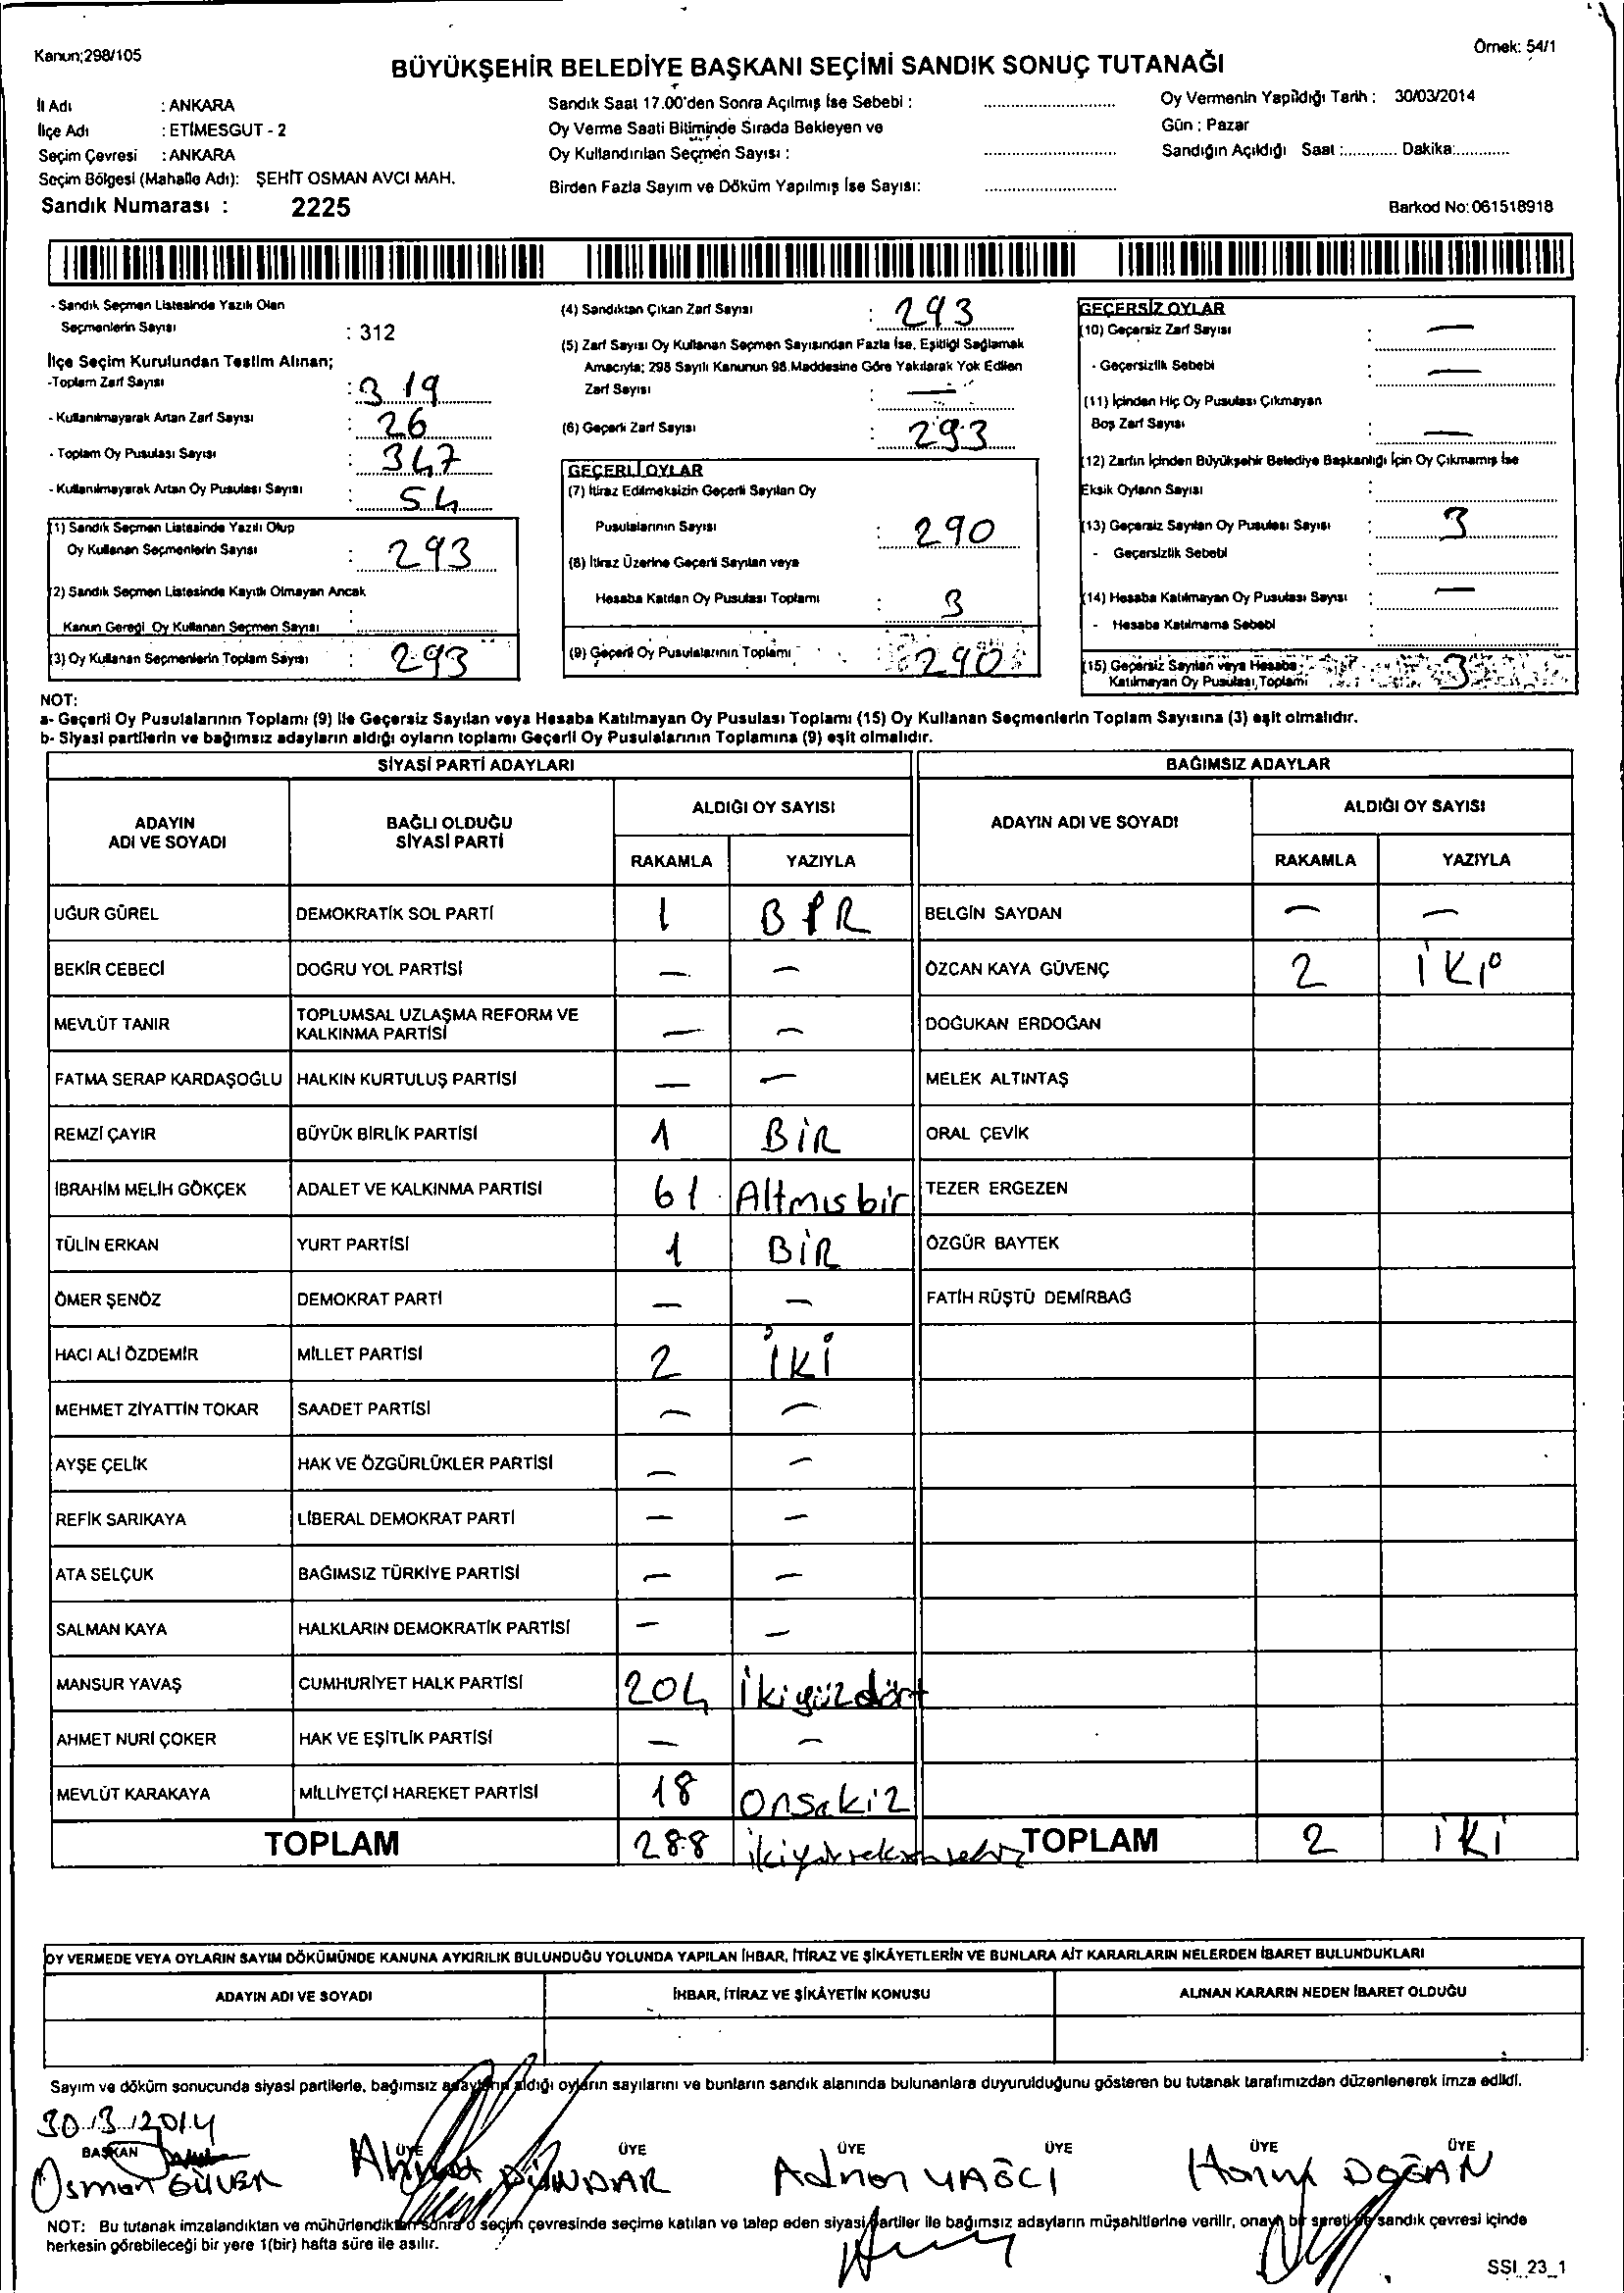 Kanun;298/105
Örnek: 54/1
BÜYÜKŞEHİR BELEDİYE BAŞKANI SEÇİMİ SANDIK SONUÇ TUTANAĞI
İl Adı : ANKARA
İlçe Adı : ETİMESGUT - 2
Seçim Çevresi : ANKARA
Seçim Bölgesi (Mahalle Adı): ŞEHİT OSMAN AVCI MAH.
Sandık Numarası : 2225
Sandık Saat 17.00'den Sonra Açılmış İse Sebebi :
Oy Verme Saati Bitiminde Sırada Bekleyen ve
Oy Kullandırılan Seçmen Sayısı :
Birden Fazla Sayım ve Döküm Yapılmış İse Sayısı:
Oy Vermenin Yapıldığı Tarih : 30/03/2014
Gün : Pazar
Sandığın Açıldığı Saat :............ Dakika:............
Barkod No: 061518918
- Sandık Seçmen Listesinde Yazılı Olan
Seçmenlerin Sayısı : 312
İlçe Seçim Kurulundan Teslim Alınan;
-Toplam Zarf Sayısı : 319
- Kullanılmayarak Artan Zarf Sayısı : 26
- Toplam Oy Pusulası Sayısı : 347
- Kullanılmayarak Artan Oy Pusulası Sayısı : 54
(1) Sandık Seçmen Listesinde Yazılı Olup
Oy Kullanan Seçmenlerin Sayısı : 293
(2) Sandık Seçmen Listesinde Kayıtlı Olmayan Ancak
Kanun Gereği Oy Kullanan Seçmen Sayısı :
(3) Oy Kullanan Seçmenlerin Toplam Sayısı : 293
(4) Sandıktan Çıkan Zarf Sayısı : 293
(5) Zarf Sayısı Oy Kullanan Seçmen Sayısından Fazla İse, Eşitliği Sağlamak
Amacıyla; 298 Sayılı Kanunun 98.Maddesine Göre Yakılarak Yok Edilen
Zarf Sayısı : —
(6) Geçerli Zarf Sayısı : 293
GEÇERLİ OYLAR
(7) İtiraz Edilmeksizin Geçerli Sayılan Oy
Pusulalarının Sayısı : 290
(8) İtiraz Üzerine Geçerli Sayılan veya
Hesaba Katılan Oy Pusulası Toplamı : 3
(9) Geçerli Oy Pusulalarının Toplamı : 290
GEÇERSİZ OYLAR
(10) Geçersiz Zarf Sayısı : —
- Geçersizlik Sebebi : —
(11) İçinden Hiç Oy Pusulası Çıkmayan
Boş Zarf Sayısı : —
(12) Zarfın İçinden Büyükşehir Belediye Başkanlığı İçin Oy Çıkmamış İse
Eksik Oyların Sayısı :
(13) Geçersiz Sayılan Oy Pusulası Sayısı : 3
- Geçersizlik Sebebi :
(14) Hesaba Katılmayan Oy Pusulası Sayısı : —
- Hesaba Katılmama Sebebi :
(15) Geçersiz Sayılan veya Hesaba
Katılmayan Oy Pusulası Toplamı 3
NOT:
a- Geçerli Oy Pusulalarının Toplamı (9) ile Geçersiz Sayılan veya Hesaba Katılmayan Oy Pusulası Toplamı (15) Oy Kullanan Seçmenlerin Toplam Sayısına (3) eşit olmalıdır.
b- Siyasi partilerin ve bağımsız adayların aldığı oyların toplamı Geçerli Oy Pusulalarının Toplamına (9) eşit olmalıdır.
SİYASİ PARTİ ADAYLARI BAĞIMSIZ ADAYLAR
ADAYIN ADI VE SOYADI BAĞLI OLDUĞU SİYASİ PARTİ ALDIĞI OY SAYISI ADAYIN ADI VE SOYADI ALDIĞI OY SAYISI
RAKAMLA YAZIYLA RAKAMLA YAZIYLA
UĞUR GÜREL DEMOKRATİK SOL PARTİ 1 BİR BELGİN SAYDAN — —
BEKİR CEBECİ DOĞRU YOL PARTİSİ — — ÖZCAN KAYA GÜVENÇ 2 İKİ
MEVLÜT TANIR TOPLUMSAL UZLAŞMA REFORM VE KALKINMA PARTİSİ — — DOĞUKAN ERDOĞAN
FATMA SERAP KARDAŞOĞLU HALKIN KURTULUŞ PARTİSİ — — MELEK ALTINTAŞ
REMZİ ÇAYIR BÜYÜK BİRLİK PARTİSİ 1 BİR ORAL ÇEVİK
İBRAHİM MELİH GÖKÇEK ADALET VE KALKINMA PARTİSİ 61 Altmısbir TEZER ERGEZEN
TÜLİN ERKAN YURT PARTİSİ 1 BİR ÖZGÜR BAYTEK
ÖMER ŞENÖZ DEMOKRAT PARTİ — — FATİH RÜŞTÜ DEMİRBAĞ
HACI ALİ ÖZDEMİR MİLLET PARTİSİ 2 İKİ
MEHMET ZİYATTİN TOKAR SAADET PARTİSİ — —
AYŞE ÇELİK HAK VE ÖZGÜRLÜKLER PARTİSİ — —
REFİK SARIKAYA LİBERAL DEMOKRAT PARTİ — —
ATA SELÇUK BAĞIMSIZ TÜRKİYE PARTİSİ — —
SALMAN KAYA HALKLARIN DEMOKRATİK PARTİSİ — —
MANSUR YAVAŞ CUMHURİYET HALK PARTİSİ 204 İkiyüzdört
AHMET NURİ ÇOKER HAK VE EŞİTLİK PARTİSİ — —
MEVLÜT KARAKAYA MİLLİYETÇİ HAREKET PARTİSİ 18 Onsekiz
TOPLAM 288 ikiyüzseksensekiz TOPLAM 2 İKİ
OY VERMEDE VEYA OYLARIN SAYIM DÖKÜMÜNDE KANUNA AYKIRILIK BULUNDUĞU YOLUNDA YAPILAN İHBAR, İTİRAZ VE ŞİKÂYETLERİN VE BUNLARA AİT KARARLARIN NELERDEN İBARET BULUNDUKLARI
ADAYIN ADI VE SOYADI İHBAR, İTİRAZ VE ŞİKÂYETİN KONUSU ALINAN KARARIN NEDEN İBARET OLDUĞU
Sayım ve döküm sonucunda siyasi partilerle, bağımsız adayların aldığı oyların sayılarını ve bunların sandık alanında bulunanlara duyurulduğunu gösteren bu tutanak tarafımızdan düzenlenerek imza edildi.
30/3/2014
BAŞKAN ÜYE ÜYE ÜYE ÜYE ÜYE ÜYE
Osman GÜVEN Ahmet DÜNDAR Adnan YAĞCI DOĞAN
NOT: Bu tutanak imzalandıktan ve mühürlendikten sonra o seçim çevresinde seçime katılan ve talep eden siyasi partiler ile bağımsız adayların müşahitlerine verilir, onaylı bir sureti de sandık çevresi içinde
herkesin görebileceği bir yere 1(bir) hafta süre ile asılır.
SSI_23_1